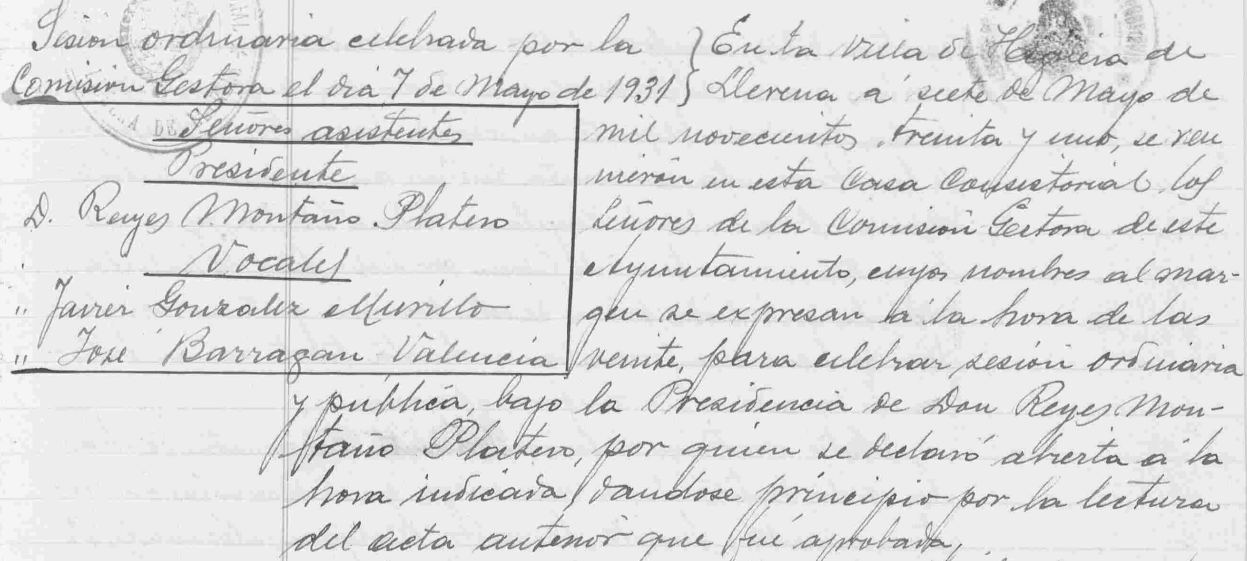 Sesión ordinaria celebrada por la
Comisión Gestora el día 7 de Mayo de 1931
Señores asistentes
Presidente
D. Reyes Montaño Platero
Vocales
" Javier Gonzalez Murillo
" José Barragan Valencia
En la Villa de Higuera de
Llerena á siete de Mayo de
mil novecientos treinta y uno, se reu
nieron en esta Casa Consistorial los
Señores de la Comisión Gestora de este
Ayuntamiento, cuyos nombres al mar-
gen se expresan á la hora de las
veinte, para celebrar sesión ordinaria
y pública, bajo la Presidencia de Don Reyes Mon-
taño Platero, por quien se declaró abierta á la
hora indicada, dandose principio por la lectura
del acta anterior que fué aprobada,